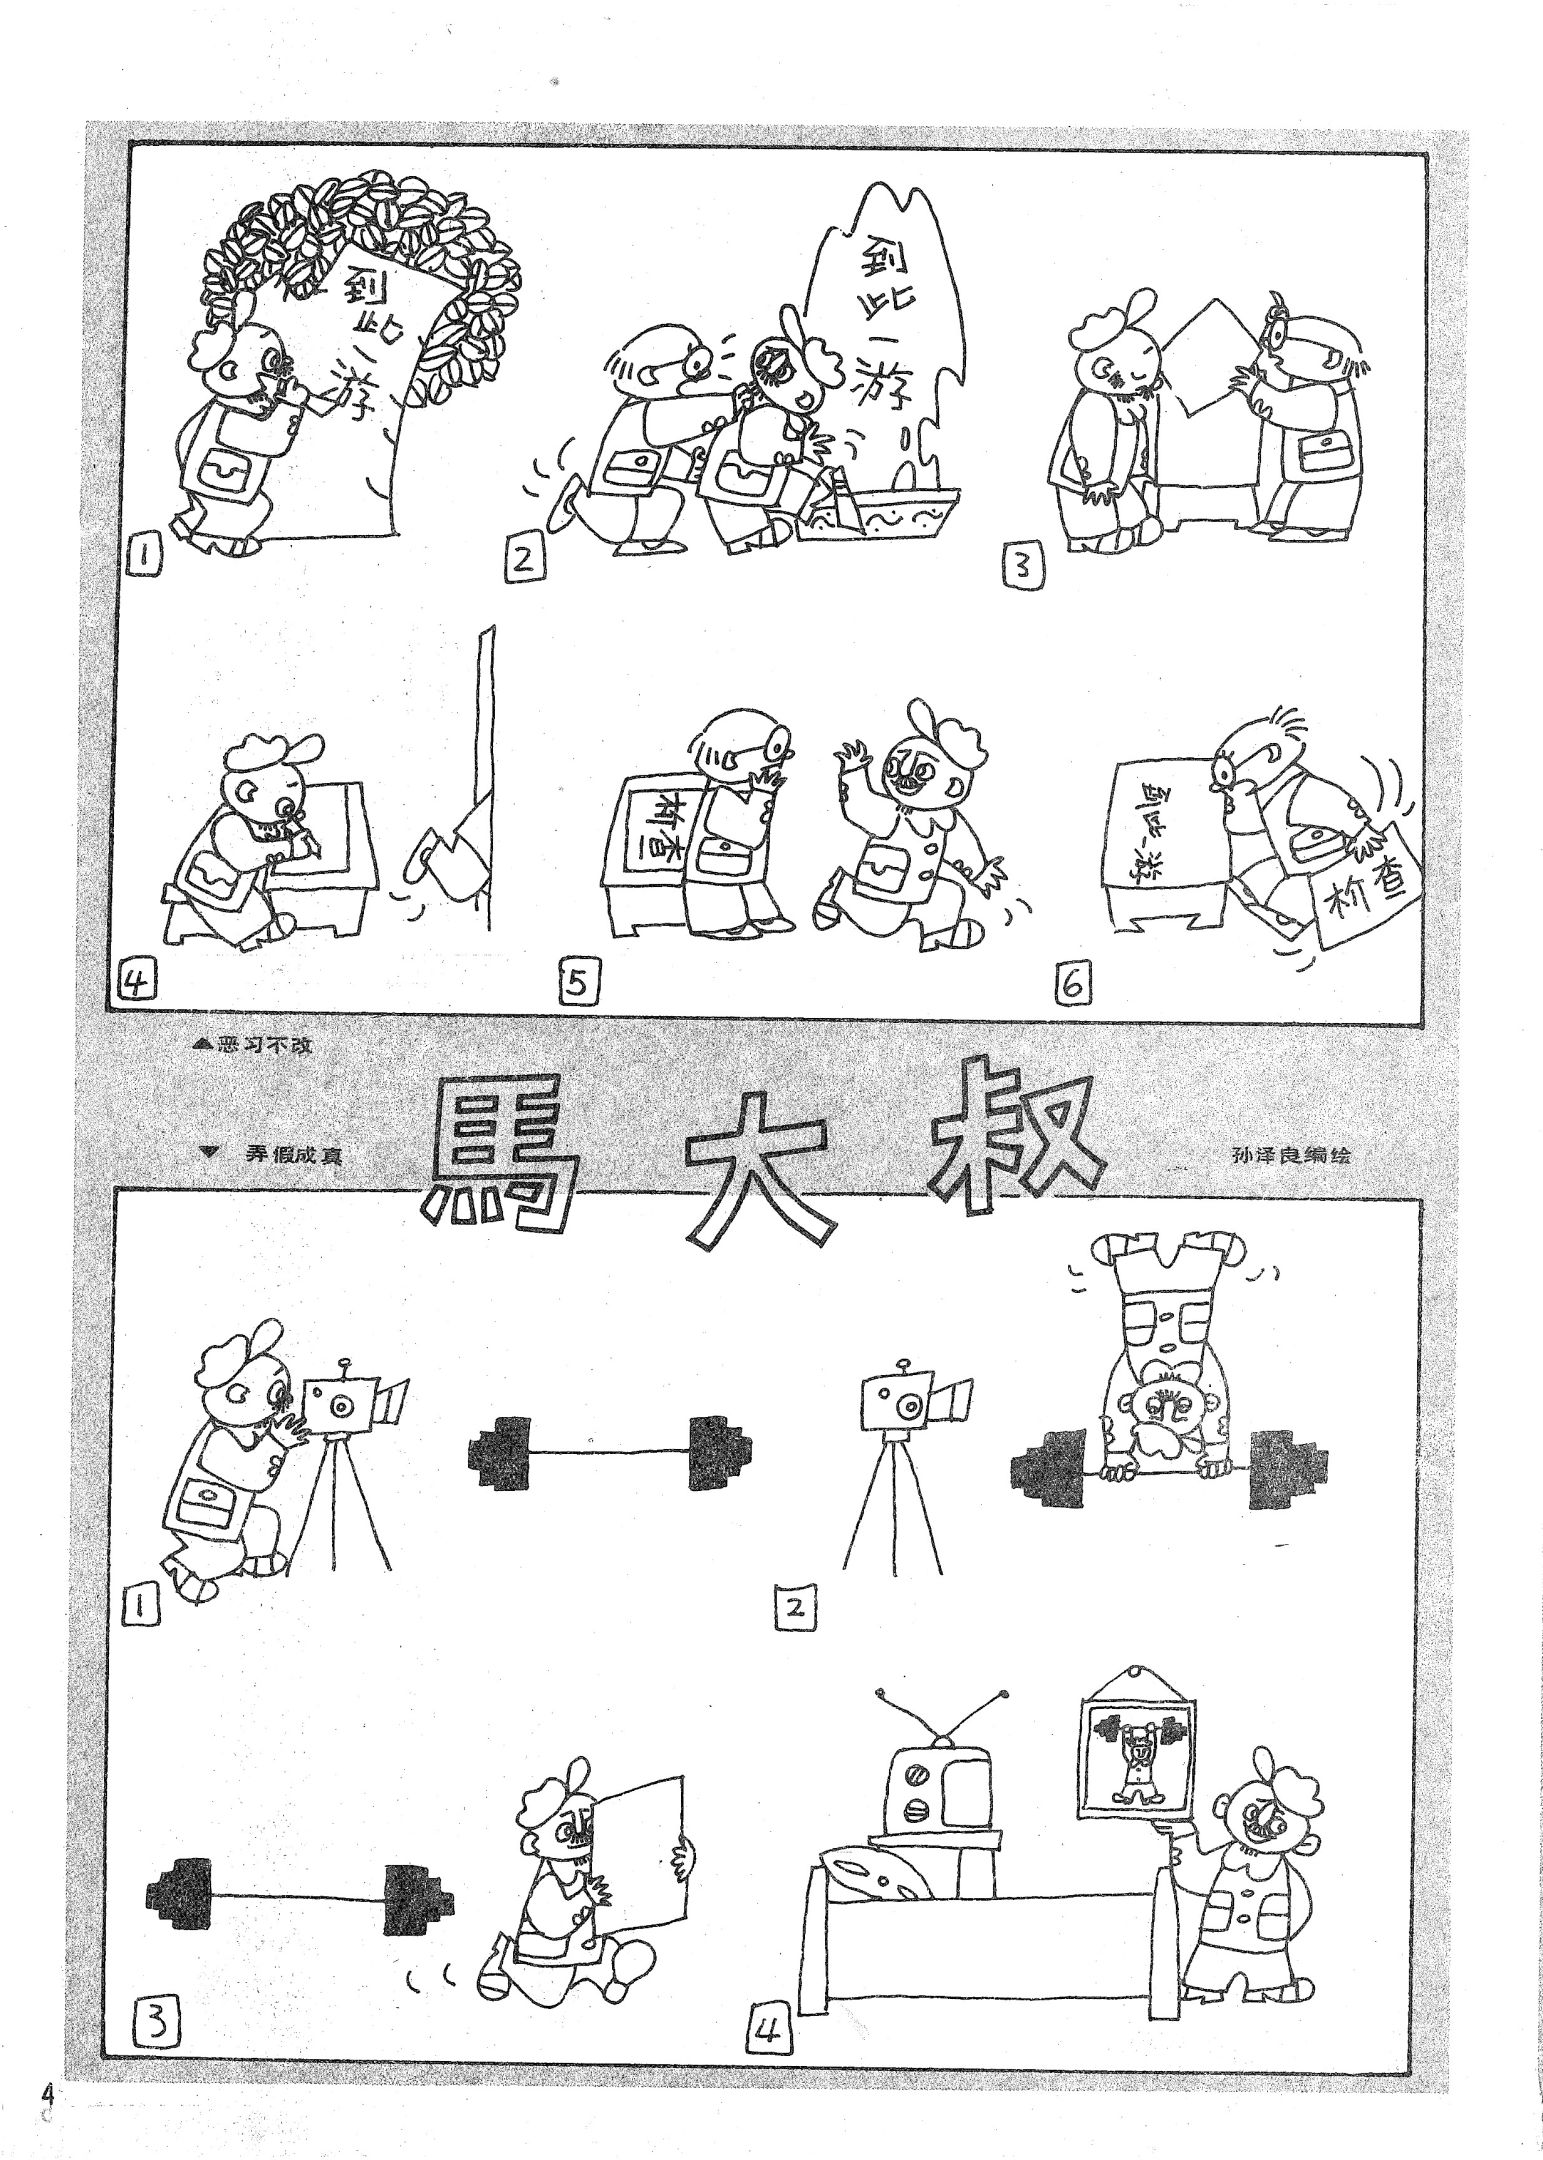 到此一游
1
到此一游
2
3
4
析查
5
到此一游
析查
6
▲恶习不改
馬大叔
▼ 弄假成真
孙泽良编绘
1
2
3
4
4